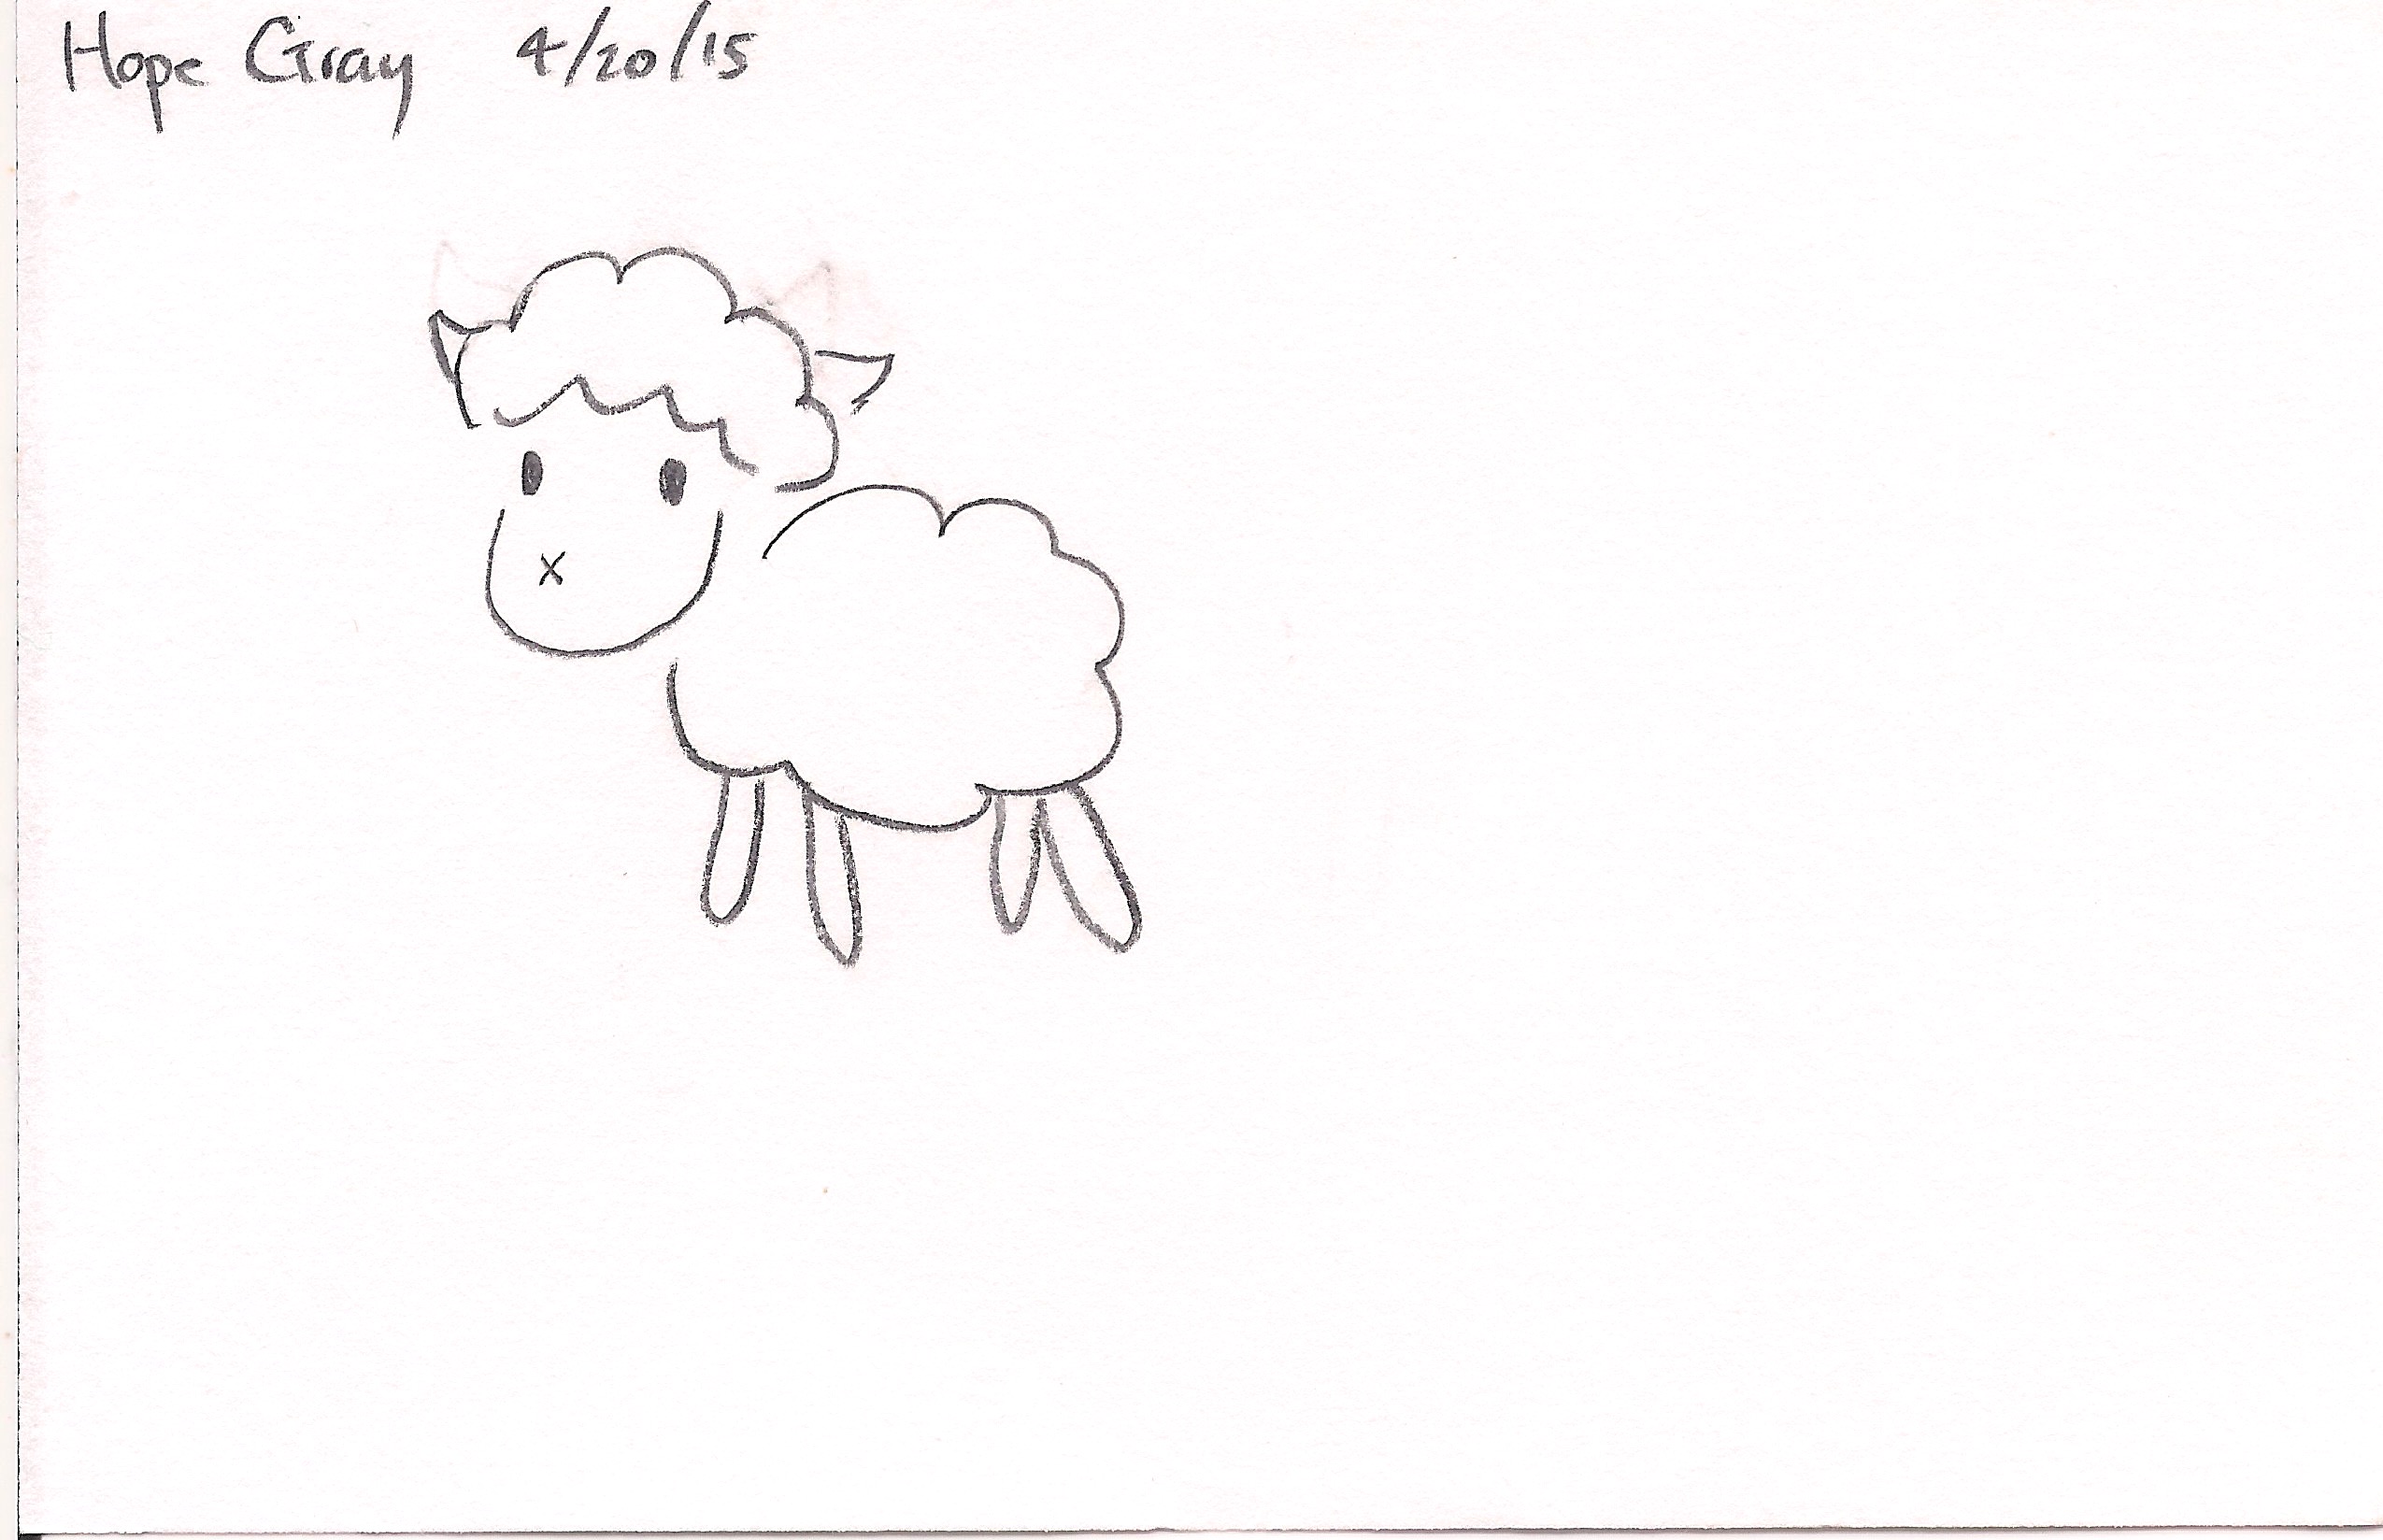 Hope Gray 4/20/15
x